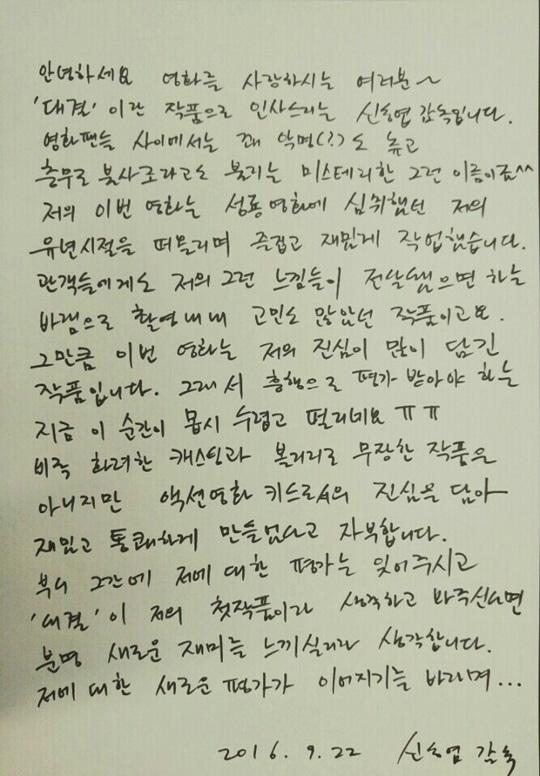 안녕하세요 영화를 사랑하시는 여러분~
'대결' 이란 작품으로 인사드리는 신동엽 감독입니다.
영화팬들 사이에서는 꽤 악명(?)도 높고
충무로 봉사로라고도 불리는 미스테리한 그런 이름이죠^^
저의 이번 영화는 성룡영화에 심취했던 저의
유년시절을 떠올리며 즐겁고 재밌게 작업했습니다.
관객들에게도 저의 그런 느낌들이 전달됐으면 하는
바램으로 촬영내내 고민도 많았던 작품이고요.
그만큼 이번 영화는 저의 진심이 많이 담긴
작품입니다. 그래서 흥행으로 평가 받아야 하는
지금 이 순간이 몹시 두렵고 떨리네요 ㅠㅠ
비록 화려한 캐스팅과 볼거리로 무장한 작품은
아니지만 액션영화 키드로서의 진심을 담아
재밌고 통쾌하게 만들었다고 자부합니다.
부디 그간에 저에 대한 평가는 잊어주시고
'대결'이 저의 첫작품이라 생각하고 봐주신다면
분명 새로운 재미를 느끼실거라 생각합니다.
저에 대한 새로운 평가가 이어지기를 바라며...
2016. 9. 22 신동엽 감독